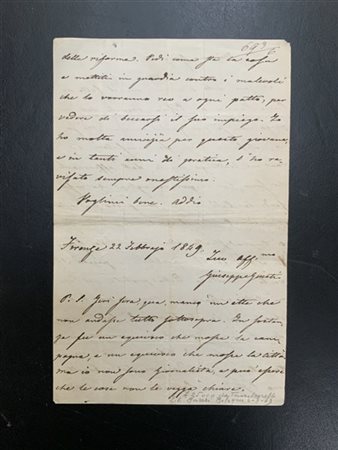 della riforma. Vedi come sta la cosa
e mettiti in guardia contro i malevoli
che lo vorranno reo a ogni patto, per
vedere di beccarsi il suo impiego. Io
ho molta amicizia per questo giovane,
e in tanti anni di pratica, l'ho ra-
visato sempre onestissimo.
Vogliimi bene. Addio
Firenze 22 Febbrajo 1849.
Tuo aff.mo
Giuseppe Giusti
P. S. Jeri sera qua, mancò un ette che
non andasse tutto sottosopra. In sostan-
za fu un equivoco che mosse la cam-
pagna, e un equivoco che mosse la città
ma io non sono giornalista, e può essere
che le cose non le vegga chiare.